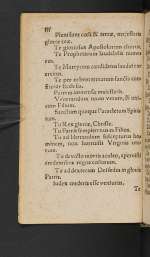 Pleni sunt cœli & terra, maiestatis
gloriæ tuæ.
Te gloriosus Apostolorum chorus,
Te Prophetarum laudabilis nume
rus.
Te Martyrum candidatus laudat ex
ercitus.
Te per orbem terrarum sancta con
fitetur Ecclesia.
Patrem immensæ maiestatis.
Venerandum tuum verum, & uni
Filium.
Sanctum quoque Paracletum Spiri
tum.
Tu Rex gloriæ, Christe.
Tu Patris sempiternus es Filius.
Tu ad liberandum suscepturus ho
minem, non horruisti Virginis ute
rum.
Tu devicto mortis aculeo, aperuisti
credentibus regna cœlorum.
Tu ad dexteram Dei sedes in gloria
Patris.
Iudex crederis esse venturus.
Te